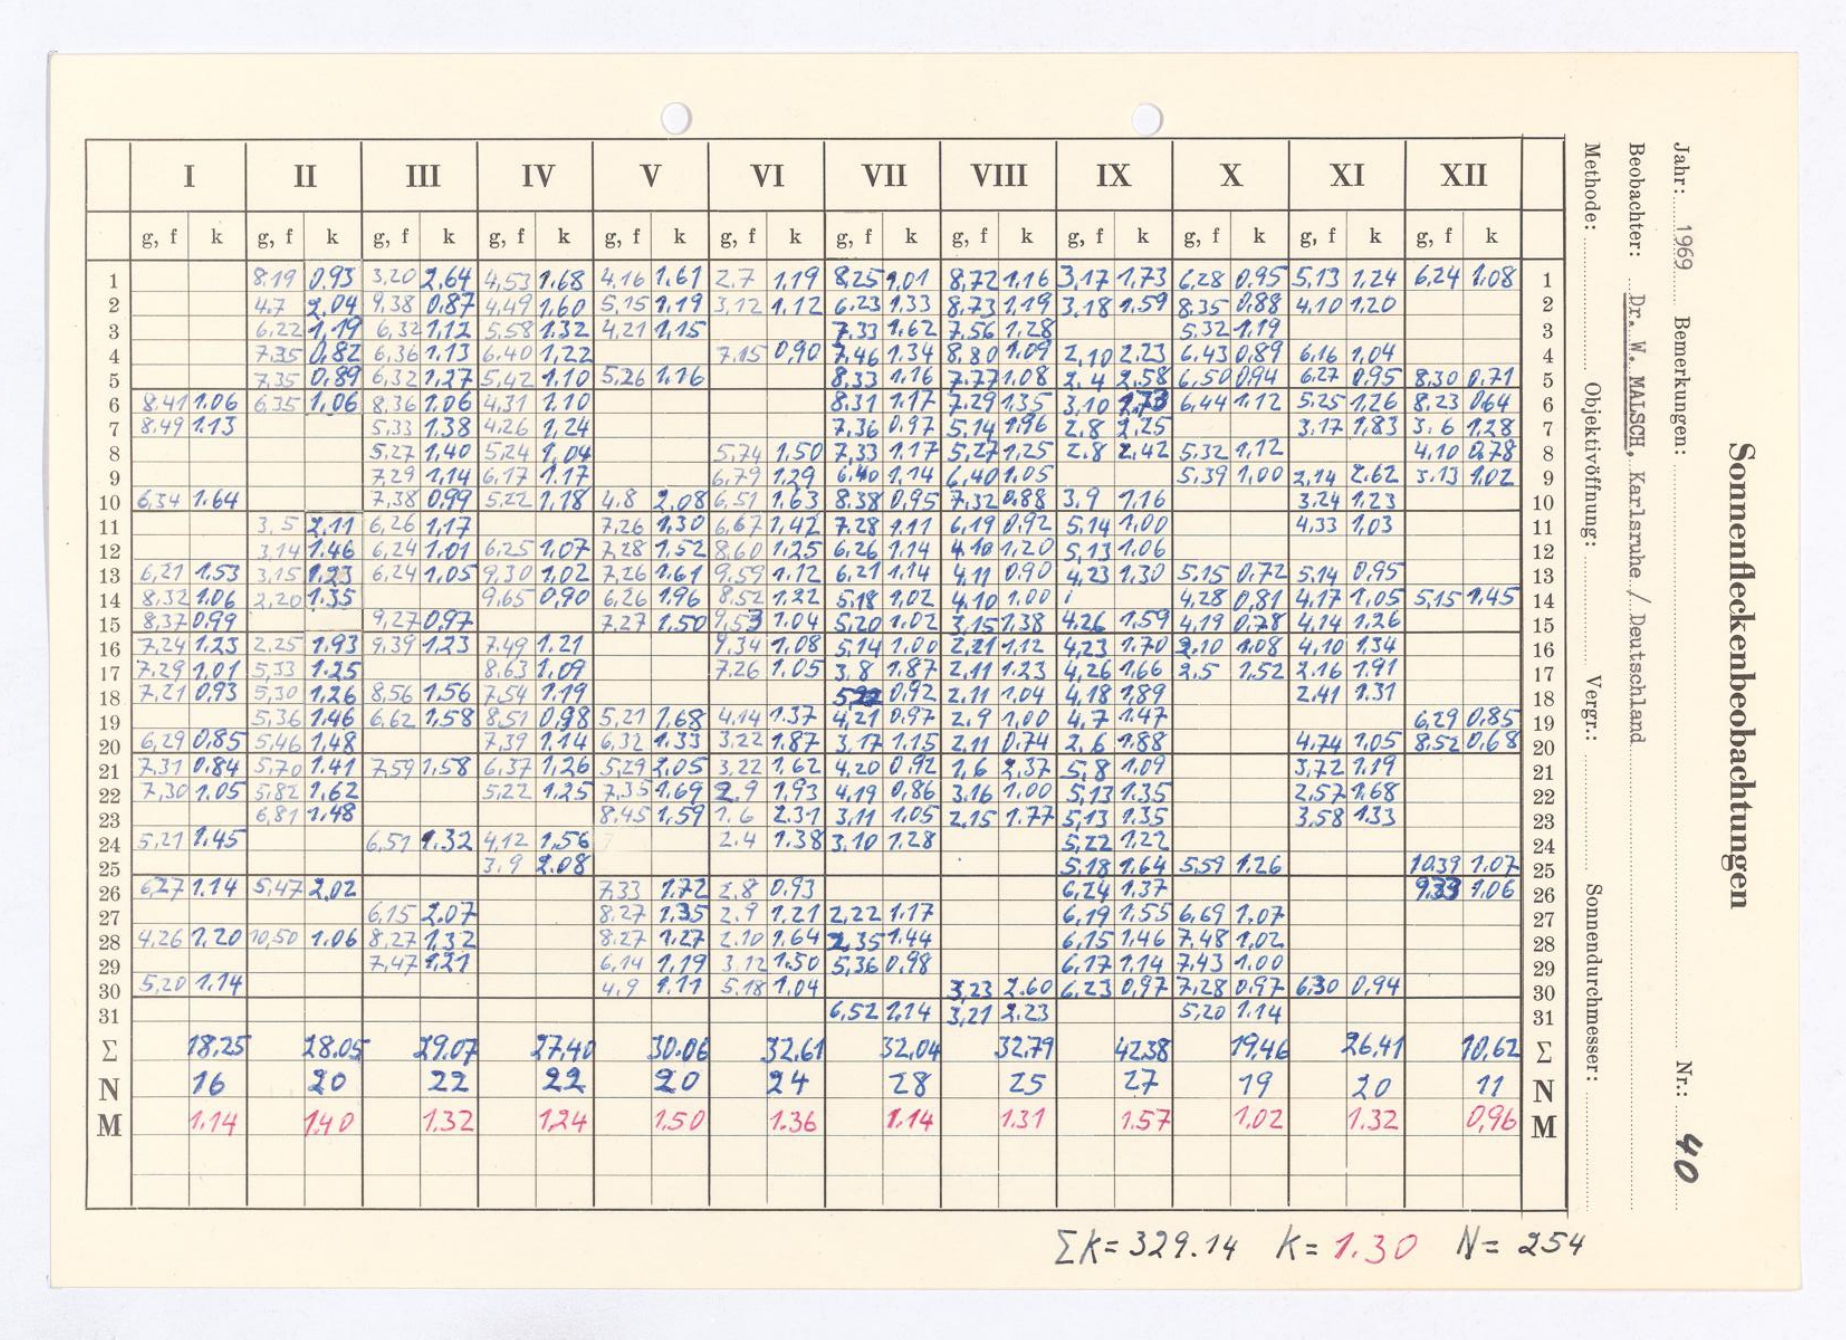 Sonnenfleckenbeobachtungen
Jahr: 1969 Bemerkungen: Nr.: 40
Beobachter: Dr. W. MALSCH, Karlsruhe / Deutschland
Methode: Objektivöffnung: Vergr.: Sonnendurchmesser:
I II III IV V VI VII VIII IX X XI XII
g, f k g, f k g, f k g, f k g, f k g, f k g, f k g, f k g, f k g, f k g, f k g, f k
1 8.19 0.93 3,20 2,64 4,53 1.68 4.16 1,61 2.7 1,19 8,25 1,01 8,72 1,16 3,17 1,73 6,28 0,95 5,13 1,24 6,24 1,08 1
2 4.7 2,04 9,38 0,87 4,49 1,60 5,15 1,19 3,12 1,12 6,23 1,33 8,73 1,19 3,18 1,59 8,35 0,88 4,10 1,20 2
3 6,22 1,19 6,32 1,12 5,58 1.32 4,21 1,15 7,33 1,62 7,56 1,28 5,32 1,19 3
4 7,35 0,82 6,36 1.13 6.40 1,22 7.15 0,90 7,46 1.34 8,80 1,09 2,10 2,23 6,43 0,89 6,16 1,04 4
5 7,35 0,89 6,32 1,27 5,42 1.10 5,26 1,16 8,33 1,16 7.77 1.08 2.4 2,58 6,50 0,94 6,27 0,95 8,30 0,71 5
6 8.41 1.06 6,35 1,06 8,36 1,06 4,31 1,10 8.31 1.17 7.29 1,35 3,10 6,44 1,12 5.25 1,26 8,23 0,64 6
7 8.49 1.13 5,33 1,38 4,26 1,24 7,36 0,97 5,14 1,96 2,8 2,25 3,17 1,83 3,6 1,28 7
8 5,27 1,40 5,24 1,04 5,74 1,50 7,33 1.17 5,27 1,25 2.8 2,42 5,32 1,12 4,10 0,78 8
9 7,29 1,14 6,17 1.17 6,79 1,29 6,40 1,14 6,40 1.05 5,39 1,00 2,14 2,62 3.13 1,02 9
10 6,34 1.64 7,38 0,99 5,22 1,18 4.8 2,08 6,51 1,63 8.38 0,95 7,32 0,88 3,9 1,16 3,24 1,23 10
11 3,5 2,11 6,26 1,17 7,26 1,30 6,67 1,42 7,28 1,11 6,19 0,92 5,14 1,00 4,33 1,03 11
12 3,14 1.46 6,24 1,01 6,25 1,07 7,28 1,52 8,60 1,25 6,26 1,14 4,10 1,20 5,13 1,06 12
13 6,21 1,53 3,15 1,23 6,24 1,05 9,30 1,02 7,26 1,61 9,59 1,12 6,21 1,14 4,11 0,90 4,23 1,30 5,15 0,72 5,14 0,95 13
14 8,32 1.06 2,20 1.35 9,65 0,90 6,26 1,96 8,52 1,22 5,18 1,02 4,10 1,00 4,28 0,81 4,17 1,05 5,15 1,45 14
15 8,37 0,99 9,27 0,97 7,27 1,50 9,53 1.04 5,20 1.02 3,15 1,38 4,26 1,59 4,19 0,78 4,14 1,26 15
16 7,24 1,23 2,25 1,93 9,39 1,23 7,49 1.21 9,34 1,08 5,14 1,00 2,21 1,12 4,23 1.70 2,10 1.08 4,10 1,34 16
17 7,29 1,01 5,33 1.25 8,63 1,09 7,26 1,05 3,8 1,87 2,11 1,23 4,26 1,66 2,5 1,52 2,16 1,91 17
18 7,21 0,93 5,30 1,26 8,56 1.56 7,54 1,19 0,92 2,11 1,04 4,18 1,89 2,41 1,31 18
19 5,36 1.46 6,62 1,58 8,51 0,98 5,21 1,68 4,14 1.37 4,21 0,97 2.9 1,00 4,7 1,47 6,29 0,85 19
20 6,29 0,85 5,46 1,48 7,39 1,14 6,32 1.33 3,22 1,87 3,17 1,15 2,11 0,74 2,6 1,88 4,74 1,05 8,52 0,68 20
21 7,31 0,84 5,70 1.41 7,59 1,58 6,37 1,26 5,29 2,05 3,22 1,62 4,20 0,92 1,6 2,37 5,8 1,09 3,72 1,19 21
22 7,30 1.05 5,82 1,62 5,22 1,25 7,35 1,69 2,9 1,93 4,19 0,86 3,16 1,00 5,13 1.35 2,57 1,68 22
23 6,81 1,48 8,45 1,59 1.6 2.31 3,11 1,05 2,15 1.77 5,13 1.35 3,58 1.33 23
24 5,21 1,45 6,51 1.32 4,12 1,56 2.4 1.38 3,10 1.28 5,22 1,22 24
25 3,9 2.08 5,18 1,64 5,59 1.26 10.39 1.07 25
26 6,27 1.14 5,47 2,02 7,33 1.72 2.8 0,93 6,24 1.37 9,33 1,06 26
27 6,15 2,07 8,27 1,35 2.9 1,21 2,22 1.17 6,19 1,55 6,69 1,07 27
28 4,26 1,20 10,50 1.06 8,27 1,32 8.27 1,27 2.10 1,64 2,35 1.44 6,15 1,46 7,48 1,02 28
29 7,47 1,21 6,14 1,19 3,12 1,50 5,36 0,98 6,17 1,14 7,43 1,00 29
30 5,20 1.14 4.9 1.11 5,18 1,04 3,23 2.60 6,23 0,97 7,28 0,97 6,30 0,94 30
31 6,52 1,14 3,21 2,23 5,20 1.14 31
Σ 18,25 28.05 29.07 27,40 30.06 32,61 32,04 32,79 42.38 19,46 26,41 10,62 Σ
N 16 20 22 22 20 24 28 25 27 19 20 11 N
M 1.14 1.40 1.32 1,24 1.50 1.36 1.14 1.31 1.57 1,02 1.32 0,96 M
Σk = 329.14 k = 1.30 N = 254